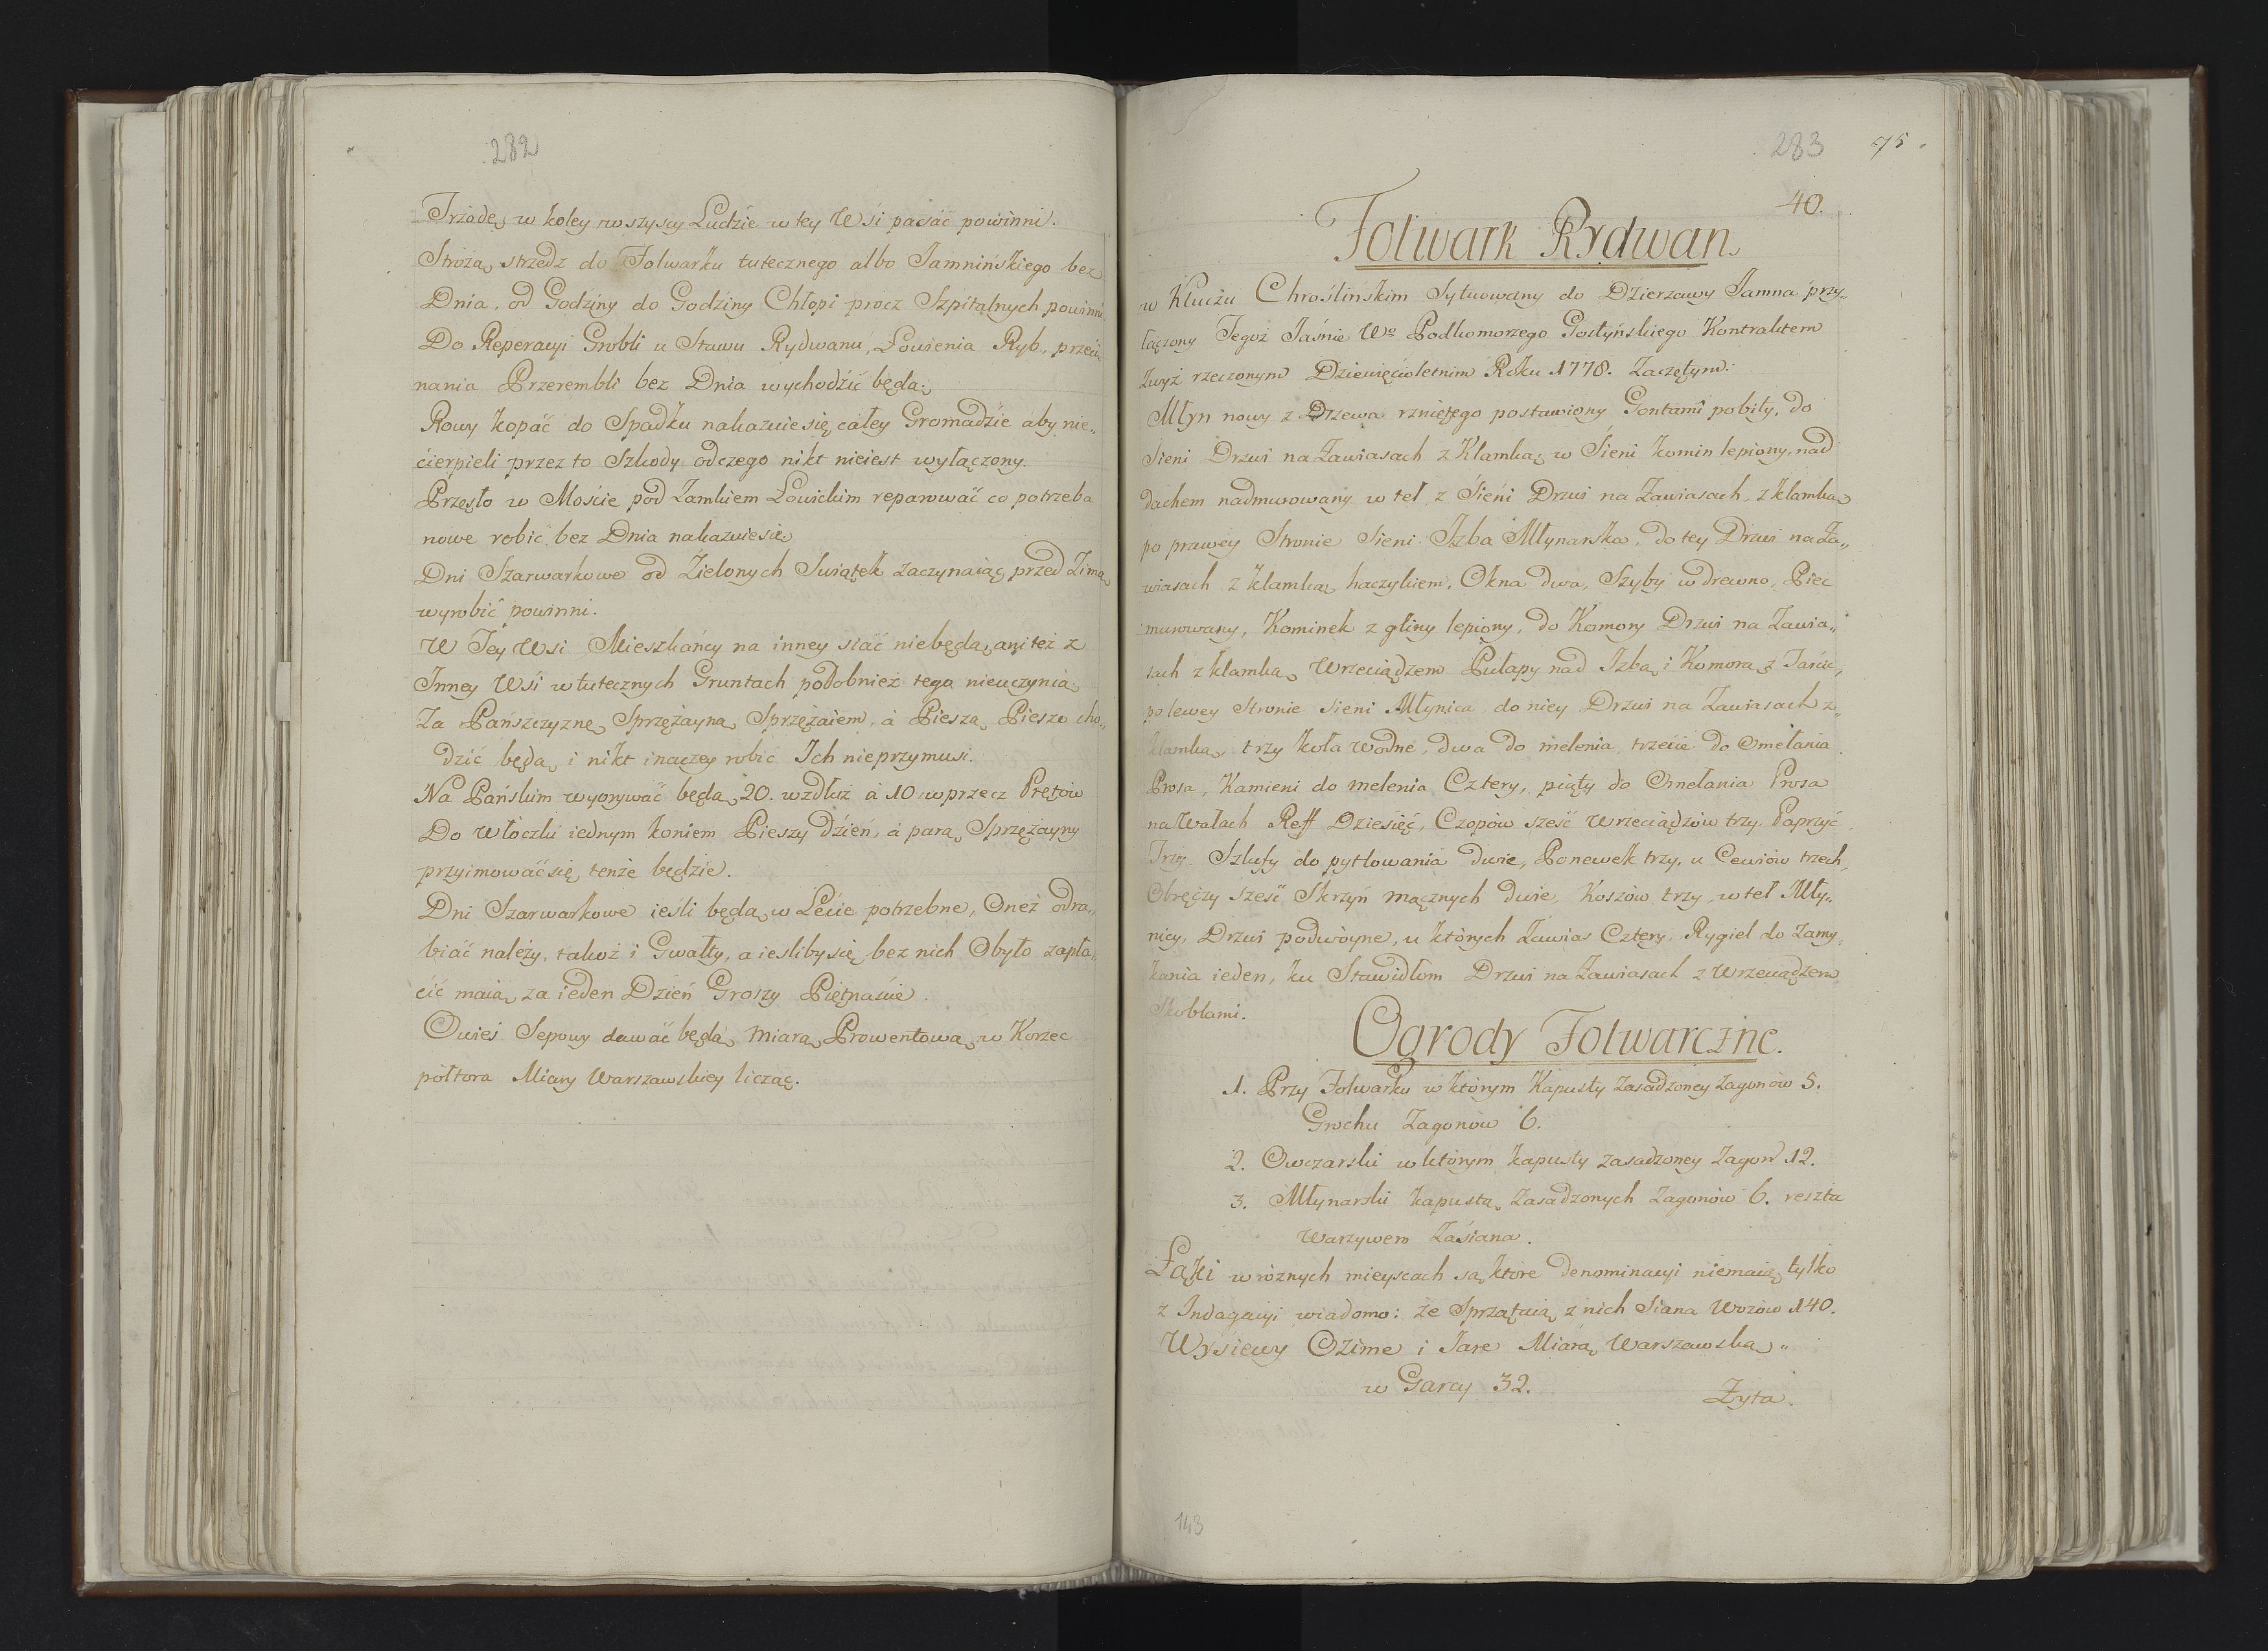 282
Trzodę w koley wszyscy Ludzie w tey Wsi pasać powinni.
Strożą strzedz do Folwarku tutecznego albo Jamnińskiego bez
Dnia, od Godziny do Godziny Chłopi procz Szpitalnych powinni
Do Reperacyi Grobli u Stawu Rydwanu, Łowienia Ryb, przeci„
nania Przerembli bez Dnia wychodźić będą.
Rowy kopać do Spadku nakazuie się całey Gromadźie aby nie„
ćierpieli przez to Szkody odczego nikt nieiest wyłączony.
Przęsło w Mośćie pod Zamkiem Łowickim reparować co potrzeba
nowe robić bez Dnia nakazuie się.
Dni Szarwarkowe od Zielonych Swiątek zaczynaiąc przed Zimą
wyrobić powinni.
W Tey Wsi Mieszkańcy na inney siać niebędą, ani też z
Inney Wsi w tutecznych Gruntach podobnież tego nieuczynią.
Za Pańszczyznę Sprzężayną Sprzężaiem, a Pieszą Pieszo cho„
dzić będą i nikt inaczey robić Ich nieprzymusi.
Na Pańskim wyorywać będą 20. wzdłuż a 10 w przecz Prętow
Do Włoczki iednym koniem Pieszy dźień, a parą Sprzężayny
przyimować się tenże będzie.
Dni Szarwarkowe ieśli będą w Lećie potrzebne, Oneż odra„
biać należy, takoż i Gwałty, a iesliby się bez nich Obyło zapła„
ćić maią za ieden Dzień Groszy Piętnaśćie.
Owies Sepowy dawać będą Miarą Prowentową w Korzec
połtora Miary Warszawskiey licząc.
283
75.
40.
Folwark Rydwan
w Kluczu Chroślińskim Sytuowany do Dzierzawy Jamna przy„
łączony Tegoż Jaśnie Wo Podkomorzego Gostyńskiego Kontraktem
zwyż rzeczonym Dziewięćioletnim Roku 1778. Zaczętym.
Młyn nowy z Drzewa rzniętego postawiony Gontami pobity, do
Sieni Drzwi na Zawiasach z Klamką, w Sieni komin lepiony, nad
dachem nadmurowany w tel z Sieni Drzwi na Zawiasach, z klamką
po prawey Stronie Sieni Izba Młynarska, do tey Drzwi na Za„
wiasach z klamką haczykiem, Okna dwa, Szyby w drewno, Piec
murowany, Kominek z gliny lepiony, do Komory Drzwi na Zawia„
sach z klamką Wrzeciądzem Pułapy nad Izbą i Komorą z Tarcic,
po lewey Stronie Sieni Młynica do niey Drzwi na Zawiasach z„
klamką trzy koła wodne, dwa do melenia trzećie do Omełania
Prosa, Kamieni do melenia Cztery, piąty do Omełania Prosa
na Wałach Reff Dziesięć, Czopów sześć Wrzeciądzow trzy Paprzyć
Trzy. Szlufy do pytlowania dwie, Panewek trzy, u Cewiow trzech,
Obręczy sześć Skrzyń mącznych dwie, Koszow trzy, w tel Mły„
nicy, Drzwi podwoyne, u ktorych Zawias Cztery, Rygiel do zamy„
kania ieden, ku Stawidłom Drzwi na Zawiasach z Wrzeciądzem
Skoblami.
Ogrody Folwarczne.
1. Przy Folwarku w ktorym Kapusty Zasadzoney Zagonow 5.
Grochu Zagonow 6.
2. Owczarski w ktorym kapusty zasadzoney Zagon 12.
3. Młynarski kapustą zasadzonych Zagonow 6. reszta
Warzywem Zasiana.
Łąki w roznych mieyscach są ktore denominacyi niemaią tylko
z Indagacyi wiadomo: że Sprzątaią z nich Siana Wozow 140.
Wysiewy Ozime i Jare Miarą Warszawską„
w Garcy 32.
Żyta.
143